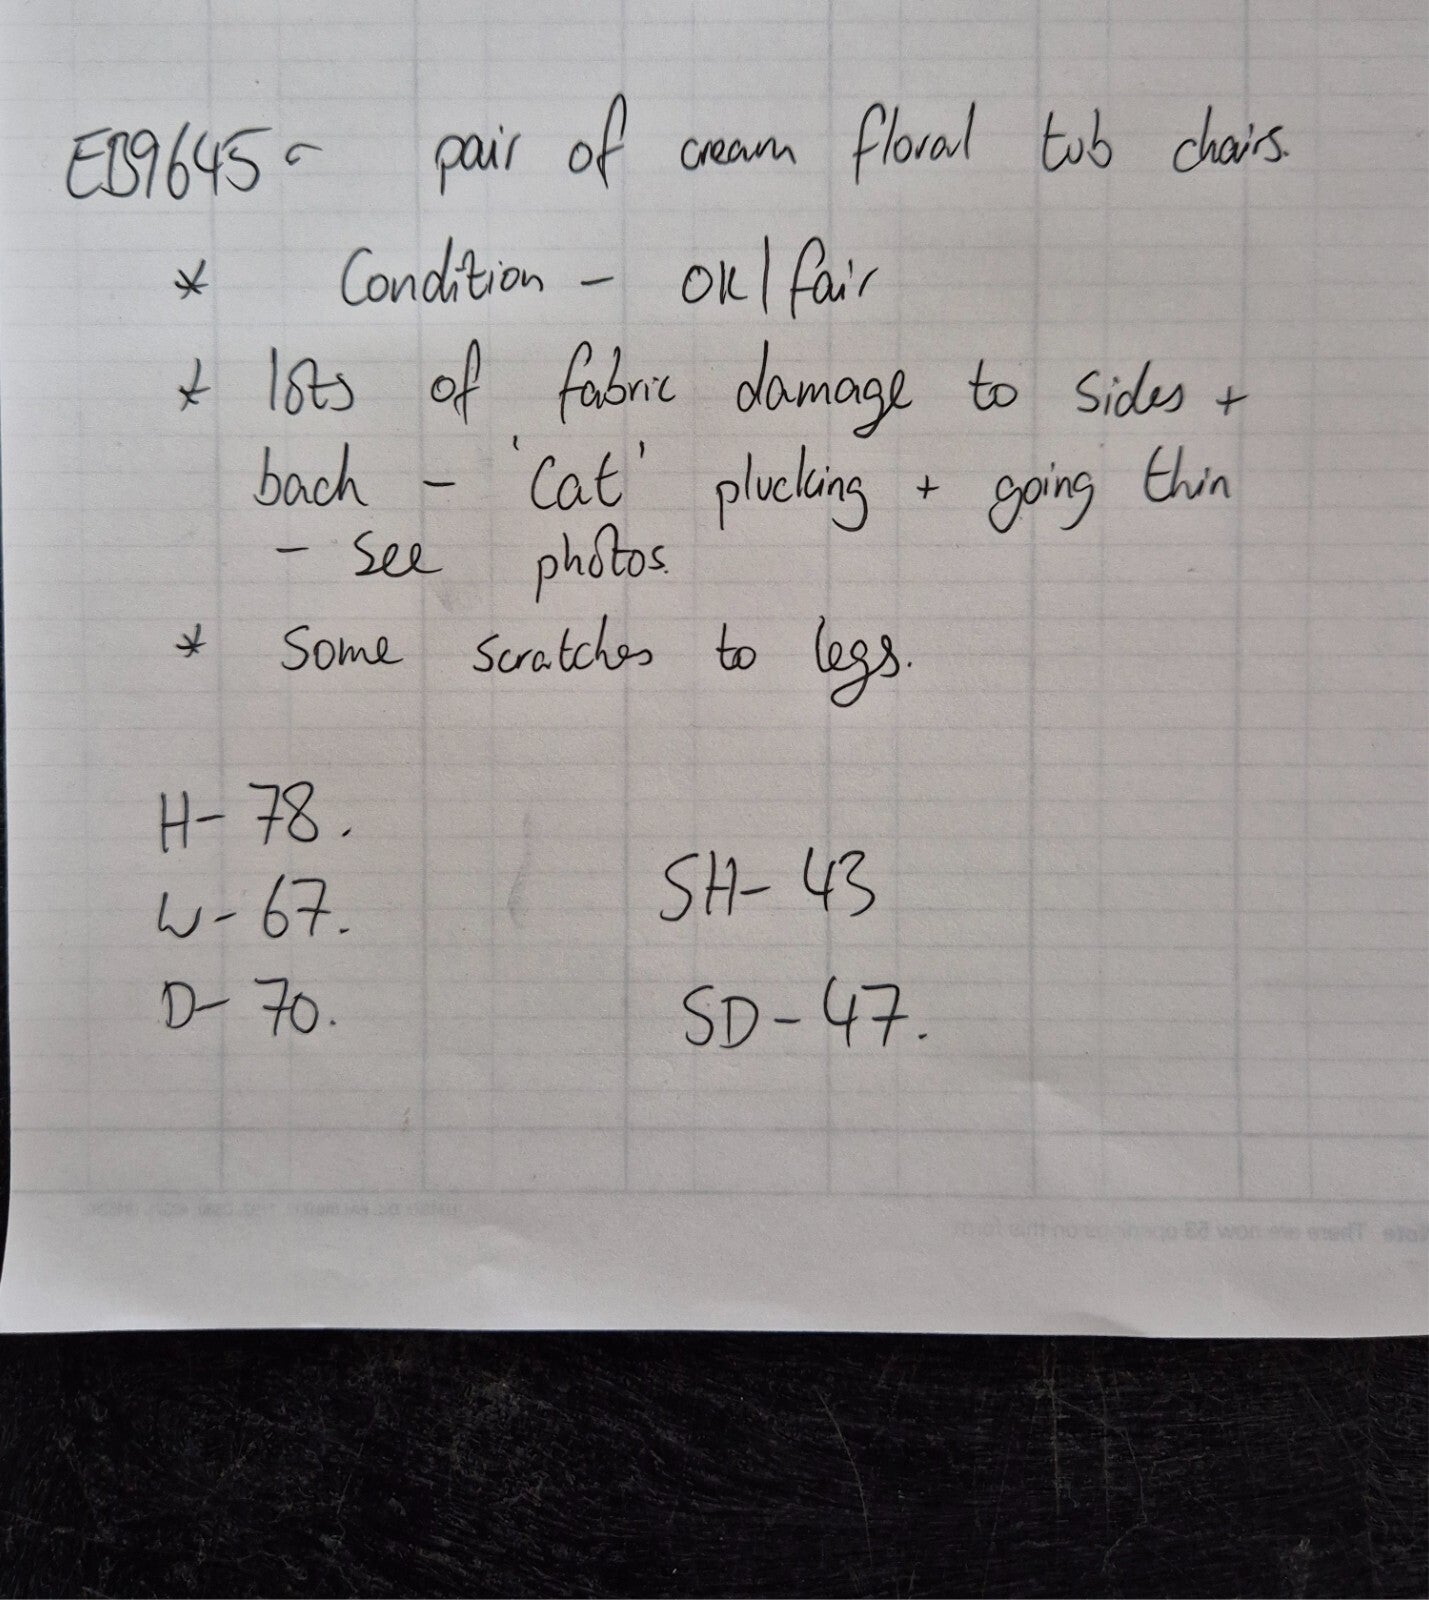 EB9645 - pair of cream floral tub chairs.
* Condition - OK/fair
* lots of fabric damage to sides +
back - 'Cat' plucking + going thin
- see photos.
* Some scratches to legs.
H- 78.
W- 67.
D- 70.
SH- 43
SD- 47.